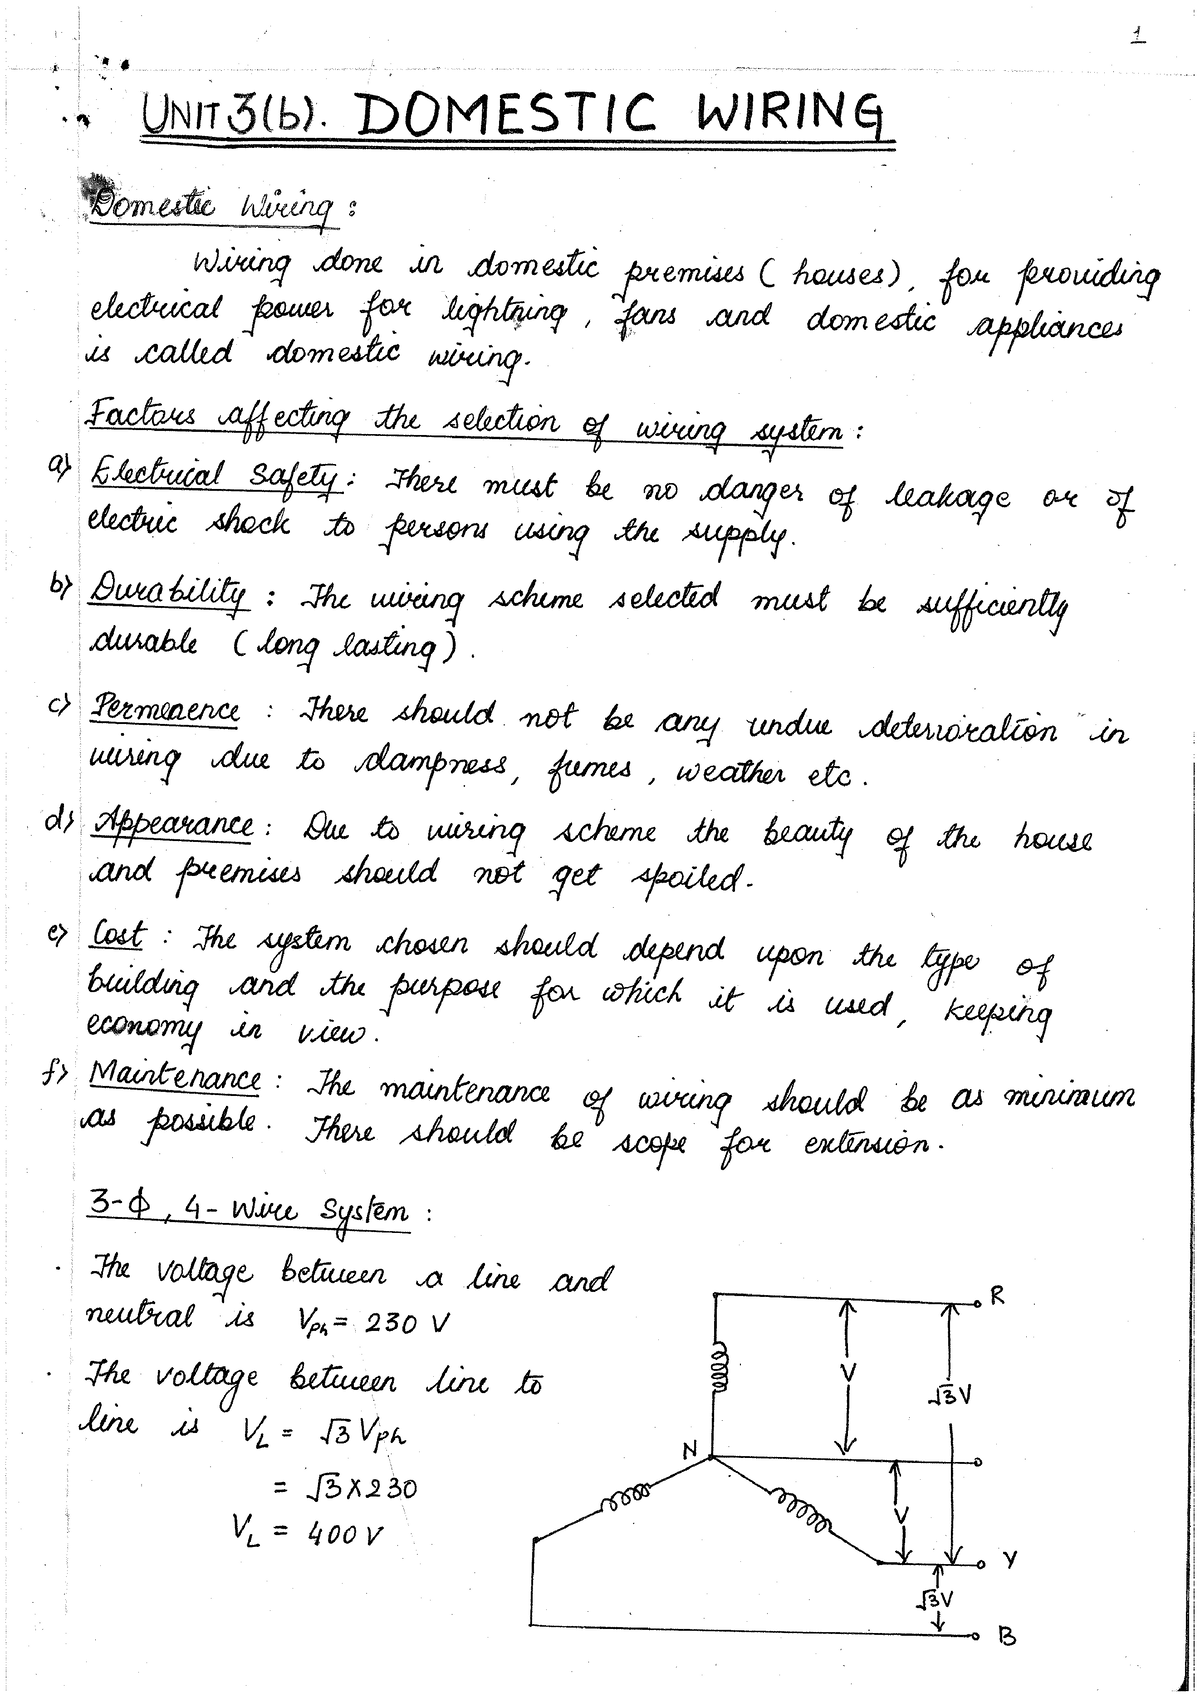 1
UNIT 3(b). DOMESTIC WIRING
Domestic Wiring :
Wiring done in domestic premises ( houses), for providing
electrical power for lightning, fans and domestic appliances
is called domestic wiring.
Factors affecting the selection of wiring system :
a) Electrical Safety : There must be no danger of leakage or of
electric shock to persons using the supply.
b) Durability : The wiring scheme selected must be sufficiently
durable ( long lasting) .
c) Permenence : There should not be any undue deterioration in
wiring due to dampness, fumes , weather etc .
d) Appearance : Due to wiring scheme the beauty of the house
and premises should not get spoiled.
e) Cost : The system chosen should depend upon the type of
building and the purpose for which it is used, keeping
economy in view.
f) Maintenance : The maintenance of wiring should be as minimum
as possible. There should be scope for extension.
3-Φ , 4- Wire System :
. The voltage between a line and
neutral is Vph = 230 V
. The voltage between line to
line is VL = √3 Vph
= √3 X 230
VL = 400 V
R
V
√3 V
N
V
Y
√3 V
B